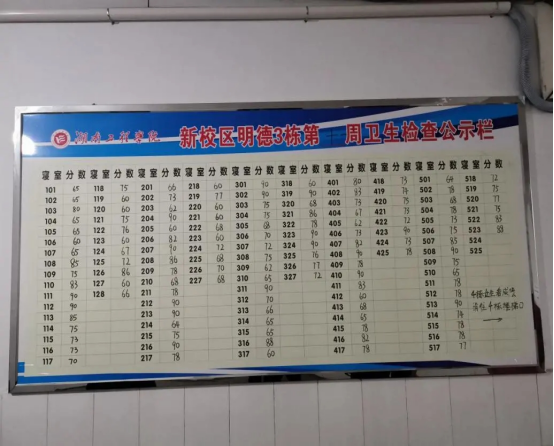 湖南工程学院 新校区明德3栋第十周卫生检查公示栏
寝室 分数 寝室 分数 寝室 分数 寝室 分数 寝室 分数 寝室 分数 寝室 分数 寝室 分数 寝室 分数 寝室 分数
101 65 118 75 201 66 218 60 301 90 318 60 401 80 418 73 501 64 518 72
102 65 119 60 202 73 219 77 302 90 319 90 402 83 419 74 502 78 519 75
103 80 120 60 203 62 220 60 303 75 320 68 403 73 420 75 503 68 520 77
104 65 121 75 204 90 221 60 304 75 321 86 404 67 421 73 504 78 521 75
105 63 122 76 205 60 222 68 305 68 322 78 405 62 422 72 505 73 522 83
106 60 123 60 206 82 223 60 306 70 323 90 406 73 423 90 506 75 523 88
107 65 124 67 207 90 224 72 307 72 324 90 407 82 424 73 507 83 524
108 85 125 72 208 86 225 68 308 75 325 76 408 90 425 78 508 90 525
109 75 126 86 209 78 226 70 309 62 326 77 409 78 509 65
110 83 127 60 210 68 227 68 310 65 327 72 410 90 510 75
111 90 128 66 211 78 311 90 411 90 511 78
112 90 212 90 312 70 412 60 512 78
113 85 213 90 313 66 413 68 513 90
114 75 214 64 314 65 414 65 514 74
115 73 215 75 315 65 415 78 515 78
116 73 216 90 316 88 416 82 516 78
117 70 217 78 317 60 417 78 517 77